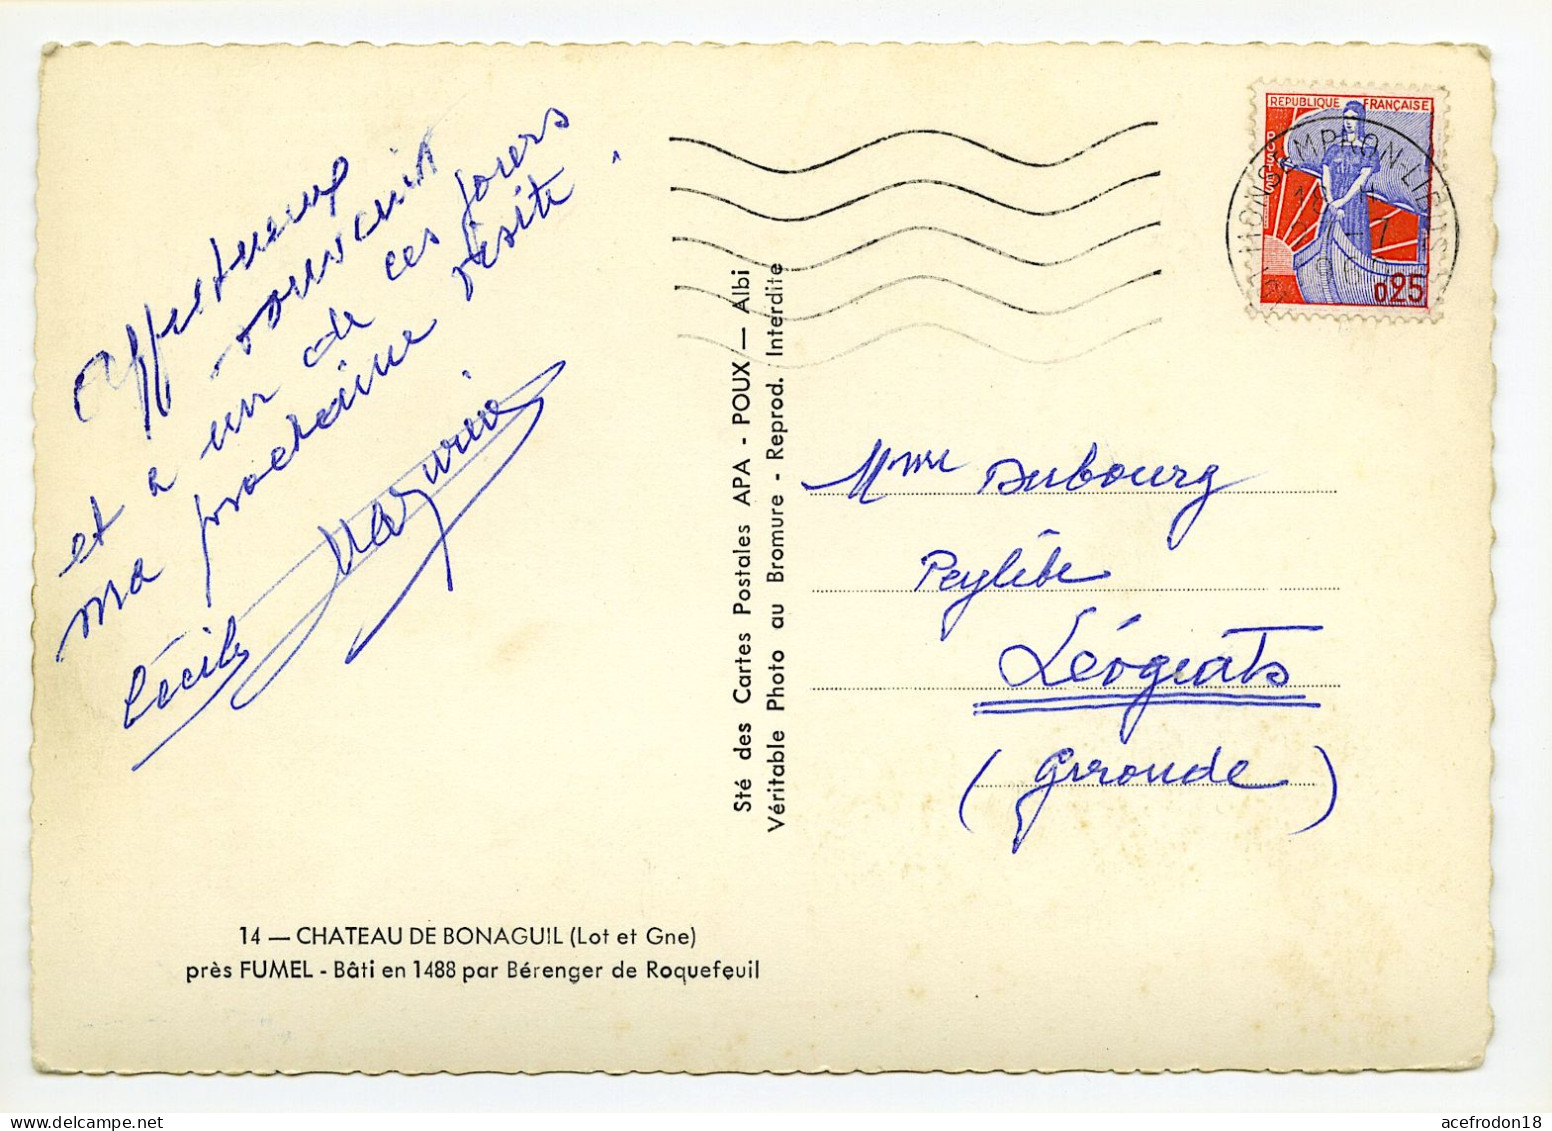 Affectueux
souvenir
et à un de ces jours
ma prochaine visite.
Cécile
14 — CHATEAU DE BONAGUIL (Lot et Gne)
près FUMEL - Bâti en 1488 par Bérenger de Roquefeuil
Sté des Cartes Postales APA - POUX — Albi
Véritable Photo au Bromure - Reprod. Interdite
REPUBLIQUE FRANÇAISE
POSTES
0,25
MONSEMPRON-LIBOS
Mme Dubourg
Peylèbe
Léogeats
(Gironde)
acefrodon18